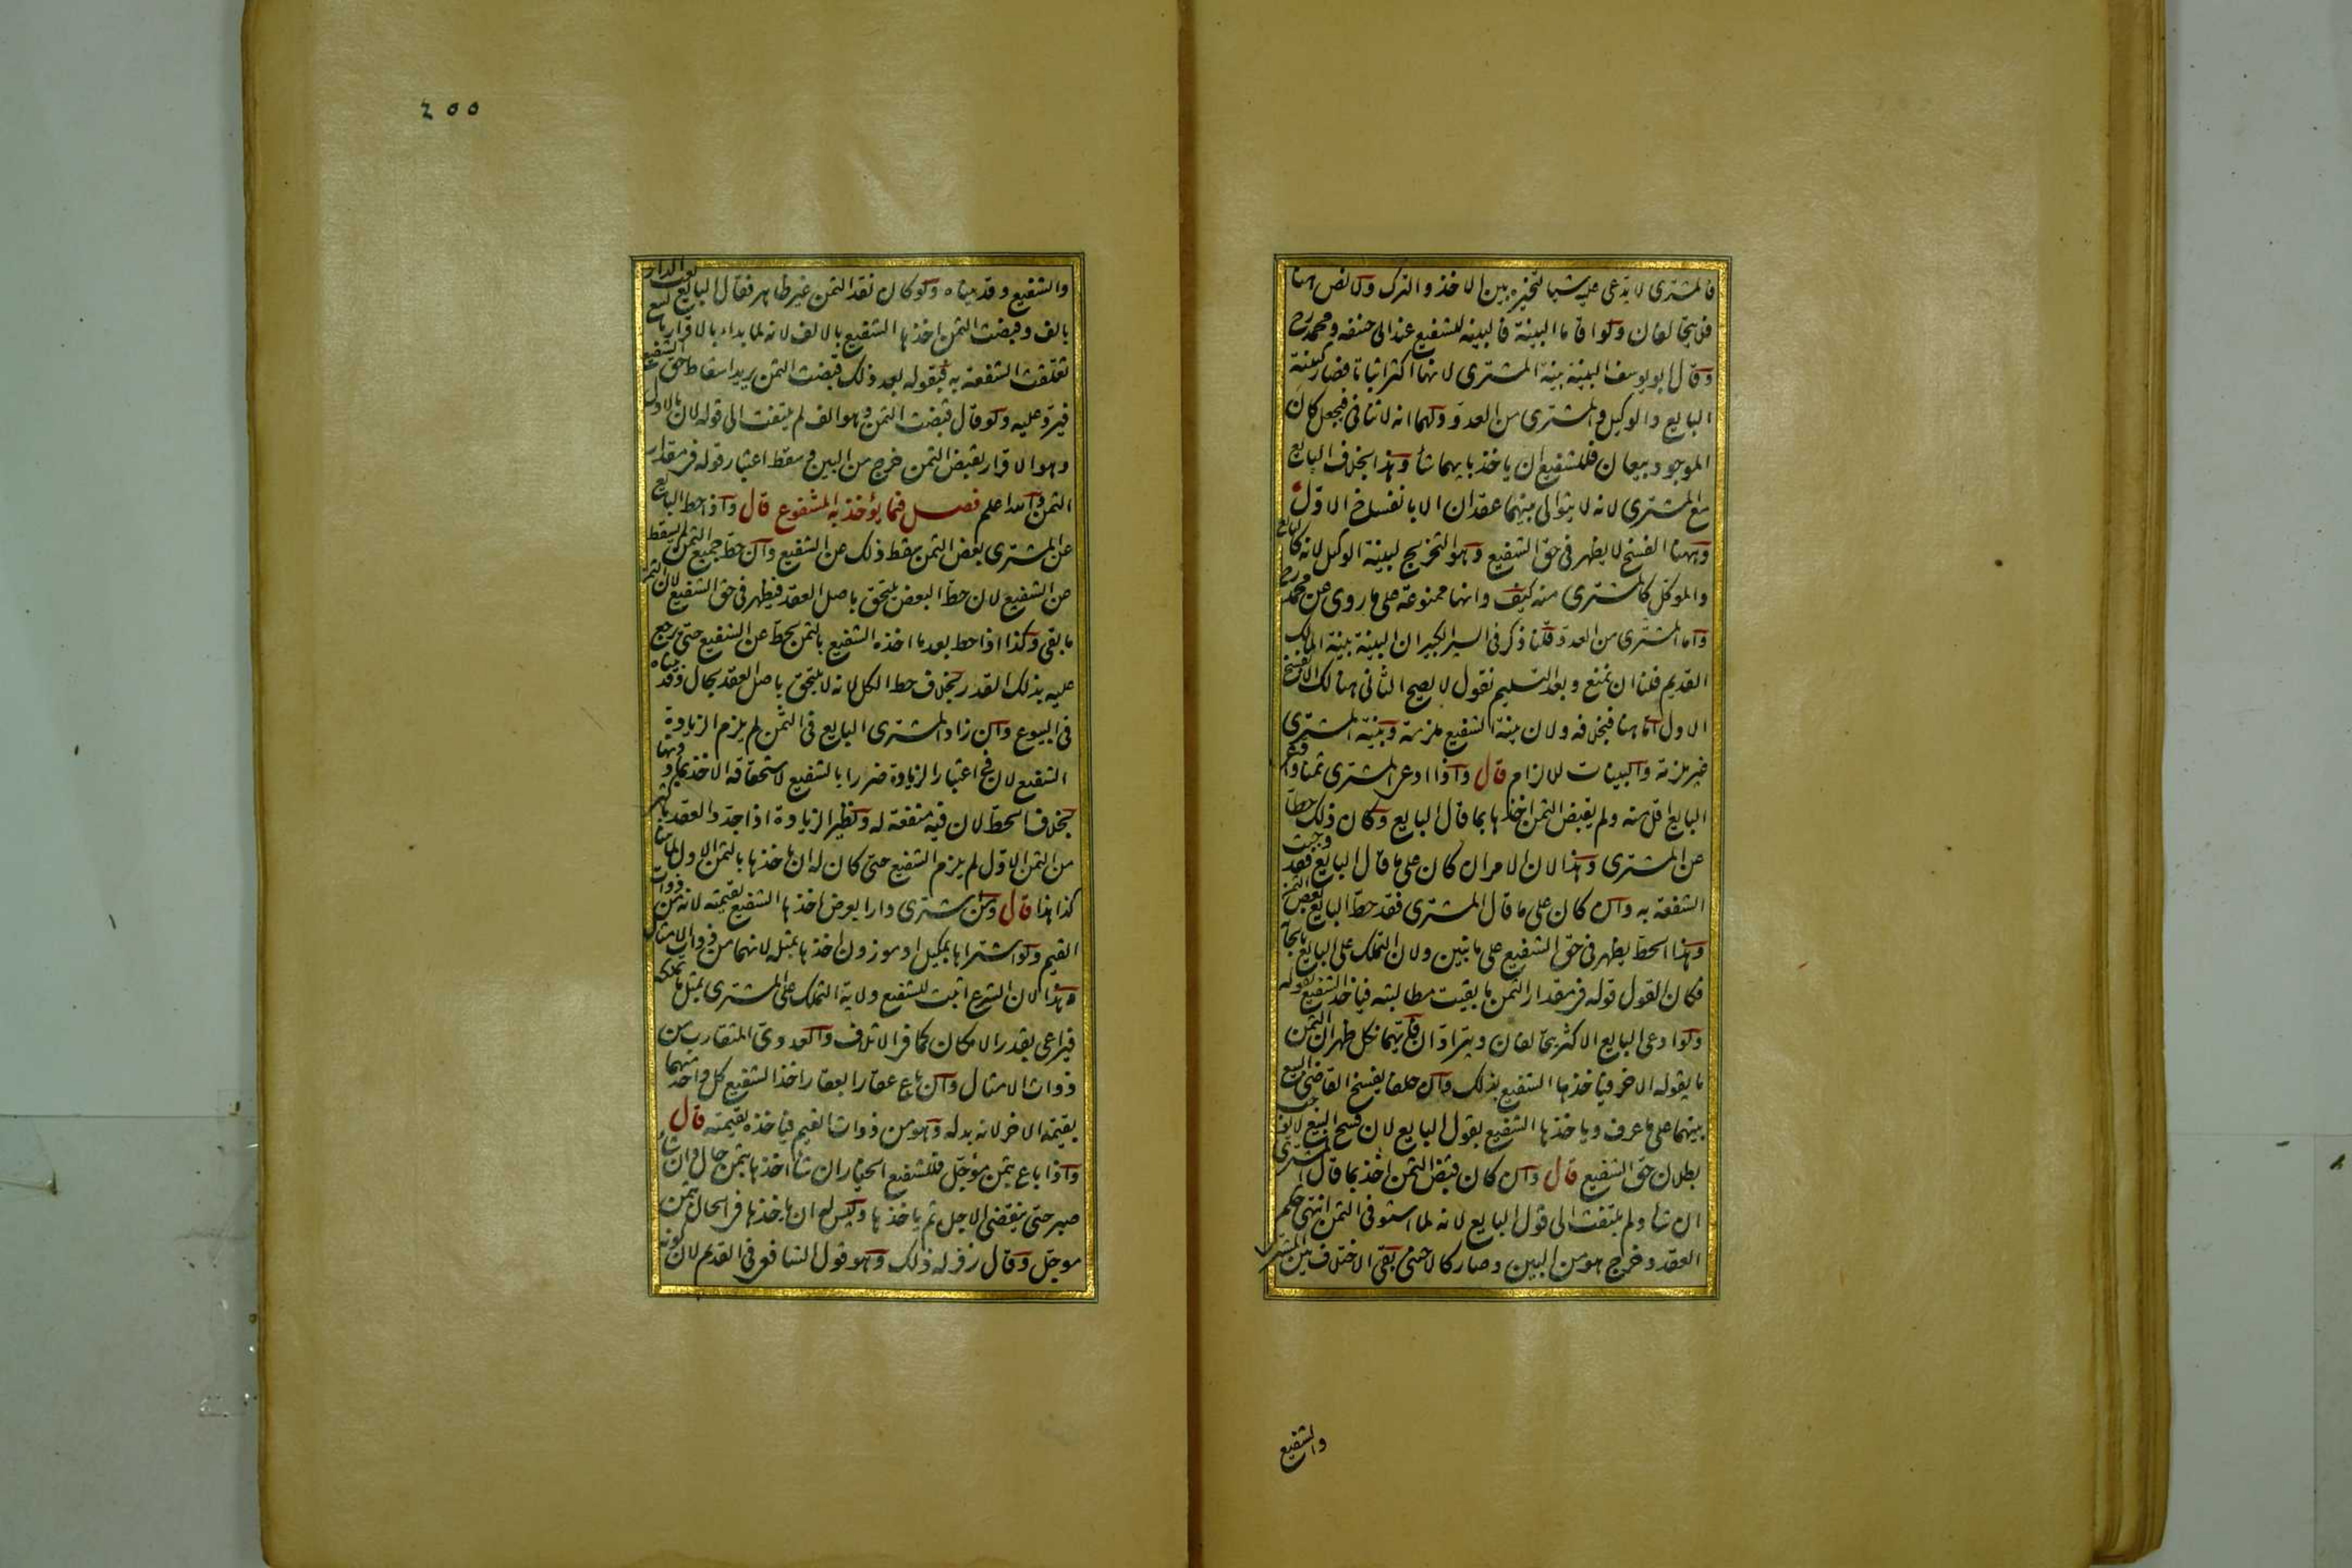 فالمشترى لا يدعى عليه شيئا لتخيره بين الاخذ والترك ولا نص هنا
فلا يتحالفان ولو اقاما البينة فالبينة للشفيع عند ابى حنيفه ومحمد رح
وقال ابو يوسف البينة بينة المشترى لانها اكثر اثباتا فصار كبينة
البايع والوكيل والمشترى من العدو ولهما انه لا تنافى فيجعل كان
الموجود بيعان فللشفيع ان ياخذ بايهما شاء وهذا بخلاف البايع
مع المشترى لانه لا يتوالى بينهما عقدان الا بانفساخ الاول
وههنا الفسخ لا يظهر فى حق الشفيع وهو التخريج لبينة الوكيل لانه كالبايع
والموكل كالمشترى منه كيف وانها ممنوعة على ما روى عن محمد رح
واما المشترى من العدو قلنا ذكر فى السير الكبير ان البينة بينة المالك
القديم فلنا ان نمنع وبعد التسليم نقول لا يصح الثانى هنالك الا بفسخ
الاول اما هنا فبخلافه ولان بينة الشفيع ملزمة وبينة المشترى
غير ملزمة والبينات للالزام قال واذا ادعى المشترى ثمنا وادعى
البايع اقل منه ولم يقبض الثمن اخذها بما قال البايع وكان ذلك حطا
عن المشترى وهذا لان الامر ان كان على ما قال البايع فقد وجبت
الشفعة به وان كان على ما قال المشترى فقد حط البايع بعض الثمن
وهذا الحط يظهر فى حق الشفيع على ما نبين ولان التملك على البايع بايجابه
فكان القول قوله فى مقدار الثمن ما بقيت مطالبته فياخذ الشفيع بقوله
ولو ادعى البايع الاكثر يتحالفان ويترادان فايهما نكل ظهر ان الثمن
ما يقوله الاخر فياخذها الشفيع بذلك وان حلفا يفسخ القاضى البيع
بينهما على ما عرف وياخذها الشفيع بقول البايع لان فسخ البيع لا يوجب
بطلان حق الشفيع قال وان كان قبض الثمن اخذ بما قال المشترى
ان شاء ولم يلتفت الى قول البايع لانه لما استوفى الثمن انتهى حكم
العقد وخرج هو من البين وصار كالاجنبى بقى الاختلاف بين المشترى
والشفيع
200
والشفيع وقد بيناه ولو كان نقد الثمن غير ظاهر فقال البايع بعت الدار
بالف وقبضت الثمن اخذها الشفيع بالالف لانه لما بداء بالاقرار بالبيع
تعلقت الشفعة به فبقوله بعد ذلك قبضت الثمن يريد اسقاط حق الشفيع
فيرد عليه ولو قال قبضت الثمن وهو الف لم يلتفت الى قوله لان بالاول
وهو الاقرار بقبض الثمن خرج من البين وسقط اعتبار قوله فى مقدار
الثمن والله اعلم فصل فيما يؤخذ به المشفوع قال واذا حط البايع
عن المشترى بعض الثمن سقط ذلك عن الشفيع وان حط جميع الثمن لم يسقط
عن الشفيع لان حط البعض يلتحق باصل العقد فيظهر فى حق الشفيع لان الثمن
ما بقى وكذا اذا حط بعد ما اخذه الشفيع بالثمن يحط عن الشفيع حتى يرجع
عليه بذلك القدر بخلاف حط الكل لانه لا يلتحق باصل العقد بحال وقد بيناه
فى البيوع وان زاد المشترى البايع فى الثمن لم يلزم الزيادة
الشفيع لان فى اعتبار الزيادة ضررا بالشفيع لاستحقاقه الاخذ بما دونها
بخلاف الحط لان فيه منفعة له ونظير الزيادة اذا جدد العقد باكثر
من الثمن الاول لم يلزم الشفيع حتى كان له ان ياخذها بالثمن الاول لما بينا
كذا هذا قال ومن اشترى دارا بعرض اخذها الشفيع بقيمته لانه من ذوات
القيم ولو اشتراها بمكيل او موزون اخذها بمثله لانهما من ذوات الامثال
وهذا لان الشرع اثبت للشفيع ولاية التملك على المشترى بمثل ما تملكه
فيراعى بقدر الامكان كما فى الاتلاف والعددى المتقارب من
ذوات الامثال وان باع عقارا بعقار اخذ الشفيع كل واحد منهما
بقيمة الاخر لانه بدله وهو من ذوات القيم فياخذه بقيمته قال
واذا باع بثمن مؤجل فللشفيع الخيار ان شاء اخذها بثمن حال وان شاء
صبر حتى ينقضى الاجل ثم ياخذها وليس له ان ياخذها فى الحال بثمن
موجل وقال زفر له ذلك وهو قول الشافعى فى القديم لان كونه